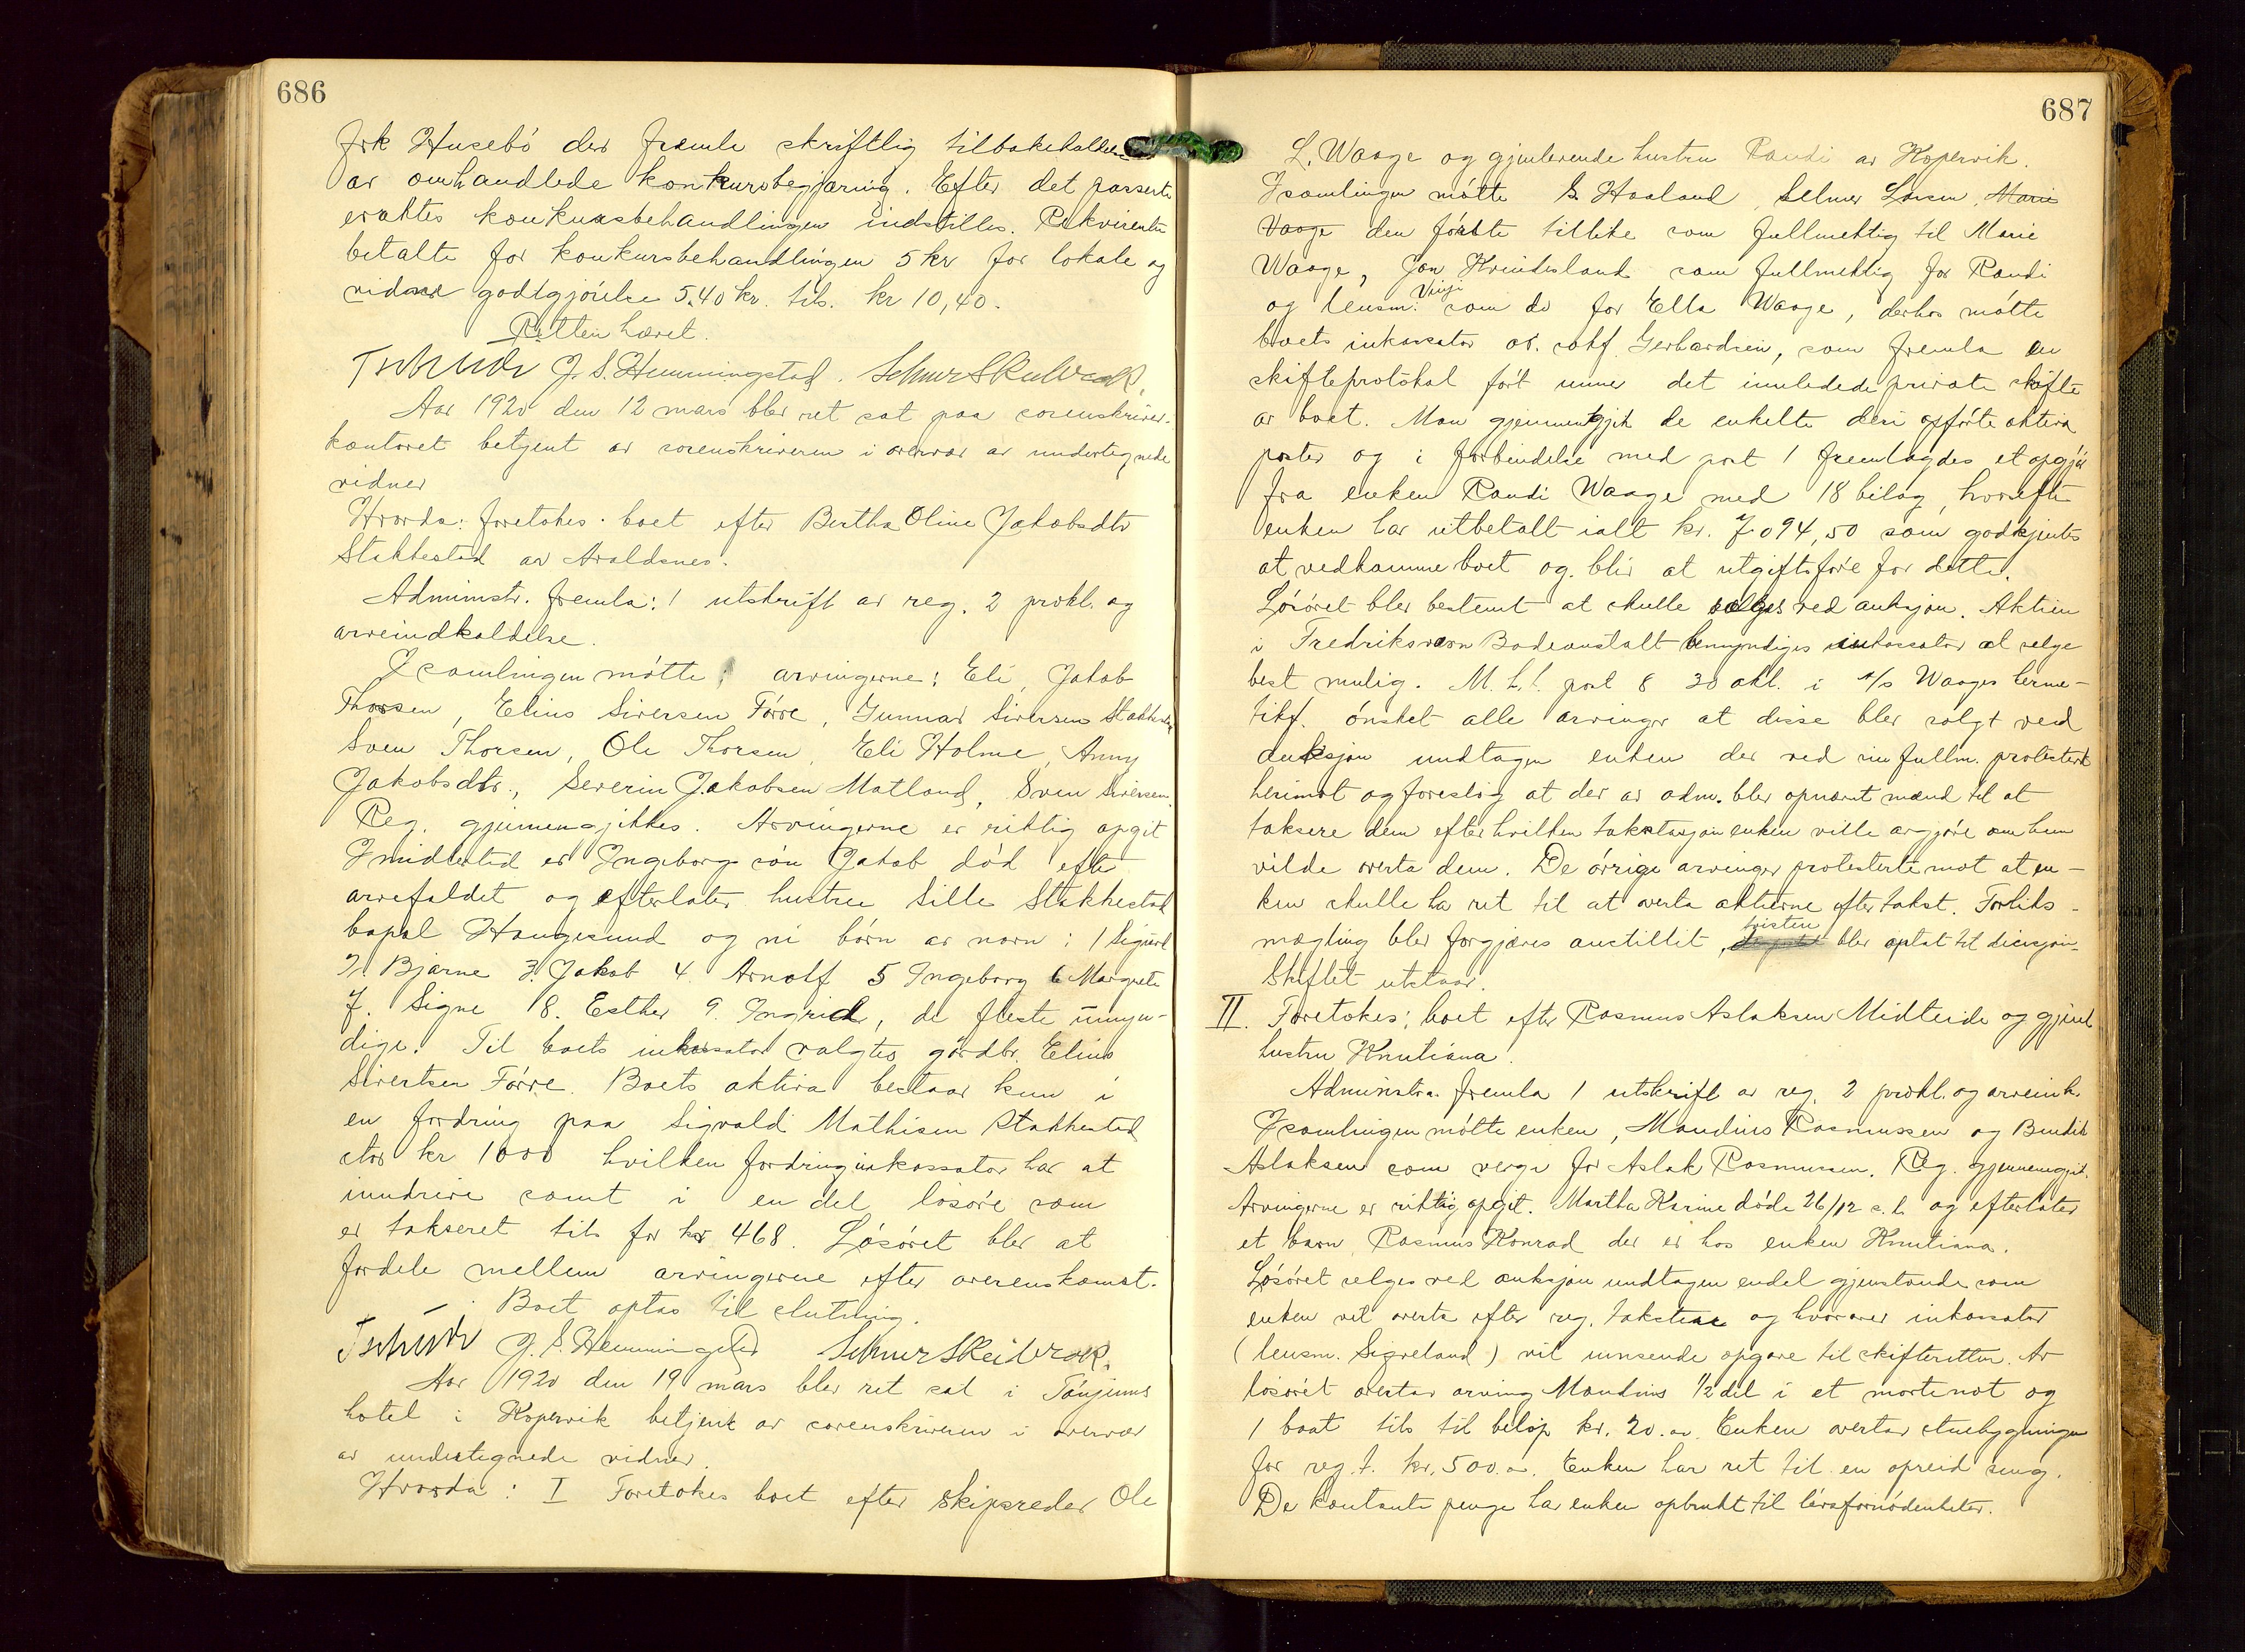 686
frk Husebö der fremla skriftlig tilbakekallelse
av omhandlede konkursbegjæring. Efter det passerte
eragtes konkursbehandlingen indstilles. Rekvirenten
betalte for konkursbehandlingen 5 kr for lokale og
vidnegodtgjörelse 5.40 kr. tils. kr 10,40.
Retten hævet.
Tschudi J. S. Hemmingstad.
Aar 1920 den 12 mars blev ret sat paa sorenskriver-
kontoret betjent av sorenskriveren i overvær av undertegnede
vidner
Hvorda: foretokes boet efter Bertha Oline Jakobsdtr
Stakkestad av Avaldsnes.
Administr. fremla: 1 utskrift av reg. 2 prokl. og
arveindkaldelse.
I samlingen mötte arvingerne: Eli, Jakob
Thorsen, Elius Siversen Förre, Gunnar Siversen Stakkestad
Sven Thorsen, Ole Thorsen, Eli Holme, Anny
Jakobsdtr., Severin Jakobsen Matland, Sven Siversen.
Reg. gjennemgikkes. Arvingerne er riktig opgit
Imidlertid er Ingeborgs sön Jakob död efter
arvefaldet og efterlater hustru Sille Stakkestad
bopæl Haugesund og ni börn av navn: 1 Sigurd
2. Bjarne 3. Jakob 4. Arnolf 5 Ingeborg 6 Margrete
7. Signe 8. Esther 9. Ingrid, de fleste umyn-
dige. Til boets inkassator valgtes gårdbr. Elius
Sivertsen Förre. Boets aktiva bestaar kun i
en fordring paa Sigvald Mathisen Stakkestad
stor kr 1000 hvilken fordring inkassator har at
inndrive samt i en del lösöre som
er takseret tils for kr 468. Lösöret blev at
fordele mellem arvingerne efter overenskomst.
Boet optas til slutning.
Tschudi J. S. Hemmingstad
Aar 1920 den 19 mars blev ret sat i Tönjums
hotel i Kopervik betjent av sorenskriveren i overvær
av undertegnede vidner.
Hvorda: I Foretokes boet efter skipsreder Ole
687
L. Waage og gjenlevende hustru Randi av Kopervik.
I samlingen mötte G. Haaland, Selmer Larsen, Marie
Vaage den förste tillike som fullmektig til Marie
Waage, Jon Kvindesland som fullmektig for Randi
og lensm. Vinje som do for Ella Waage, derhos mötte
boets inkassator o.r. sakf. Gerhardsen, som fremla en
skifteprotokol fört unner det innledede private skifte
av boet. Man gjennemgjik de enkelte deri opförte aktiva
poster og i forbindelse med post 1 fremlagdes et opgjör
fra enken Randi Waage med 18 bilag, hvorefter
enken har utbetalt ialt kr. 7094,50 som godkjentes
at vedkomme boet og blir at utgiftsföre for dette.
Lösöret blev bestemt at skulle selges ved auksjon. Aktien
i Fredriksværn Badeanstalt bemyndiges inkassator at selge
best mulig. M.h.t. post 8 30 akt. i A/S Waages herme-
tikf. önsket alle arvinger at disse blev solgt ved
auksjon undtagen enken der ved sin fullm. protesterte
herimot og foreslog at der av adm. blev opnævnt mænd til at
taksere dem efter hvilken takstasjon enken ville avgjöre om hun
vilde overta dem. De övrige arvinger protesterte mot at en-
ken skulle ha ret til at overta aktierne efter takst. Forliks-
mægling blev forgjæves anstillit, tvisten blev optat til decisjon.
Skiftet utstaar.
II. Foretokes: boet efter Rasmus Aslaksen Midteide og gjenl.
hustru Knutiana.
Administra. fremla 1 utskrift av reg. 2 prokl. og arveink.
I samlingen mötte enken, Mandius Rasmussen og Bendik
Aslaksen som verge for Aslak Rasmussen. Reg. gjennemgjik.
Arvingerne er riktig opgit. Martha Karine döde 26/12 s.å. og efterlater
et barn Rasmus Konrad der er hos enken Knutiana.
Lösöret selges ved auksjon undtagen endel gjenstande som
enken vil overta efter reg. takster og hvorover inkassator
(lensm. Sigveland) vil innsende opgave til skifteretten. Av
lösöret overtar arving Mandius 1/2 del i et mortenot og
1 baat tils til belöp kr. 20.00. Enken overtar stuebygningen
for reg. t. kr. 500.00. Enken har ret til en opreid seng.
De kontante penge har enken opbrukt til livsfornödenheter.